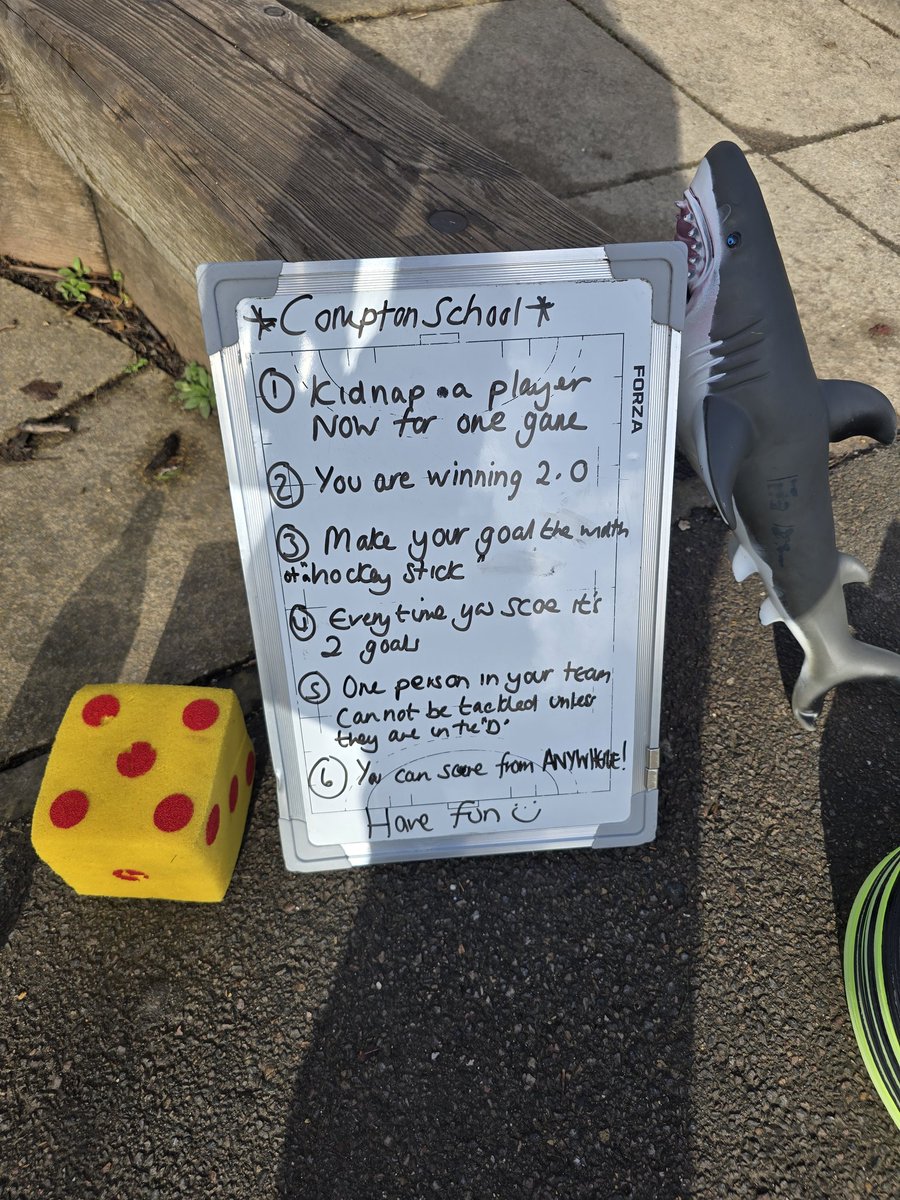 *Compton School*
① Kidnap a player
NOW for one game
② You are winning 2.0
③ Make your goal the width
of a "hockey stick"
④ Everytime you scoe it's
2 goals
⑤ One person in your team
Cannot be tackled unless
they are in the "D"
⑥ You can score from ANYWHERE!
Have fun
FORZA